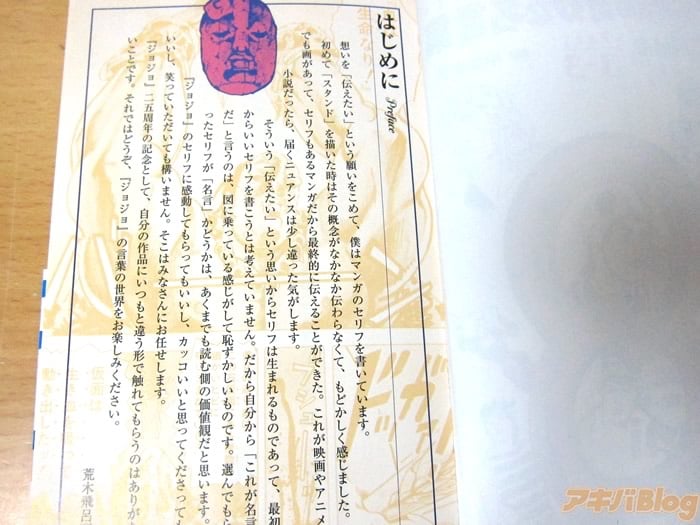 はじめに Preface
想いを「伝えたい」という願いをこめて、僕はマンガのセリフを書いています。
初めて「スタンド」を描いた時はその概念がなかなか伝わらなくて、もどかしく感じました。
でも画があって、セリフもあるマンガだから最終的に伝えることができた。これが映画やアニメ
小説だったら、届くニュアンスは少し違った気がします。
そういう「伝えたい」という思いからセリフは生まれるものであって、最初
からいいセリフを書こうとは考えていません。だから自分から「これが名言
だ」と言うのは、図に乗っている感じがして恥ずかしいものです。選んでもら
ったセリフが「名言」かどうかは、あくまでも読む側の価値観だと思います。
『ジョジョ』のセリフに感動してもらってもいいし、カッコいいと思ってくださっても
いいし、笑っていただいても構いません。そこはみなさんにお任せします。
『ジョジョ』二五周年の記念として、自分の作品にいつもと違う形で触れてもらうのはありがた
いことです。それではどうぞ、『ジョジョ』の言葉の世界をお楽しみください。
荒木飛呂
生命なり
仮面は
動き出した
アキバBlog